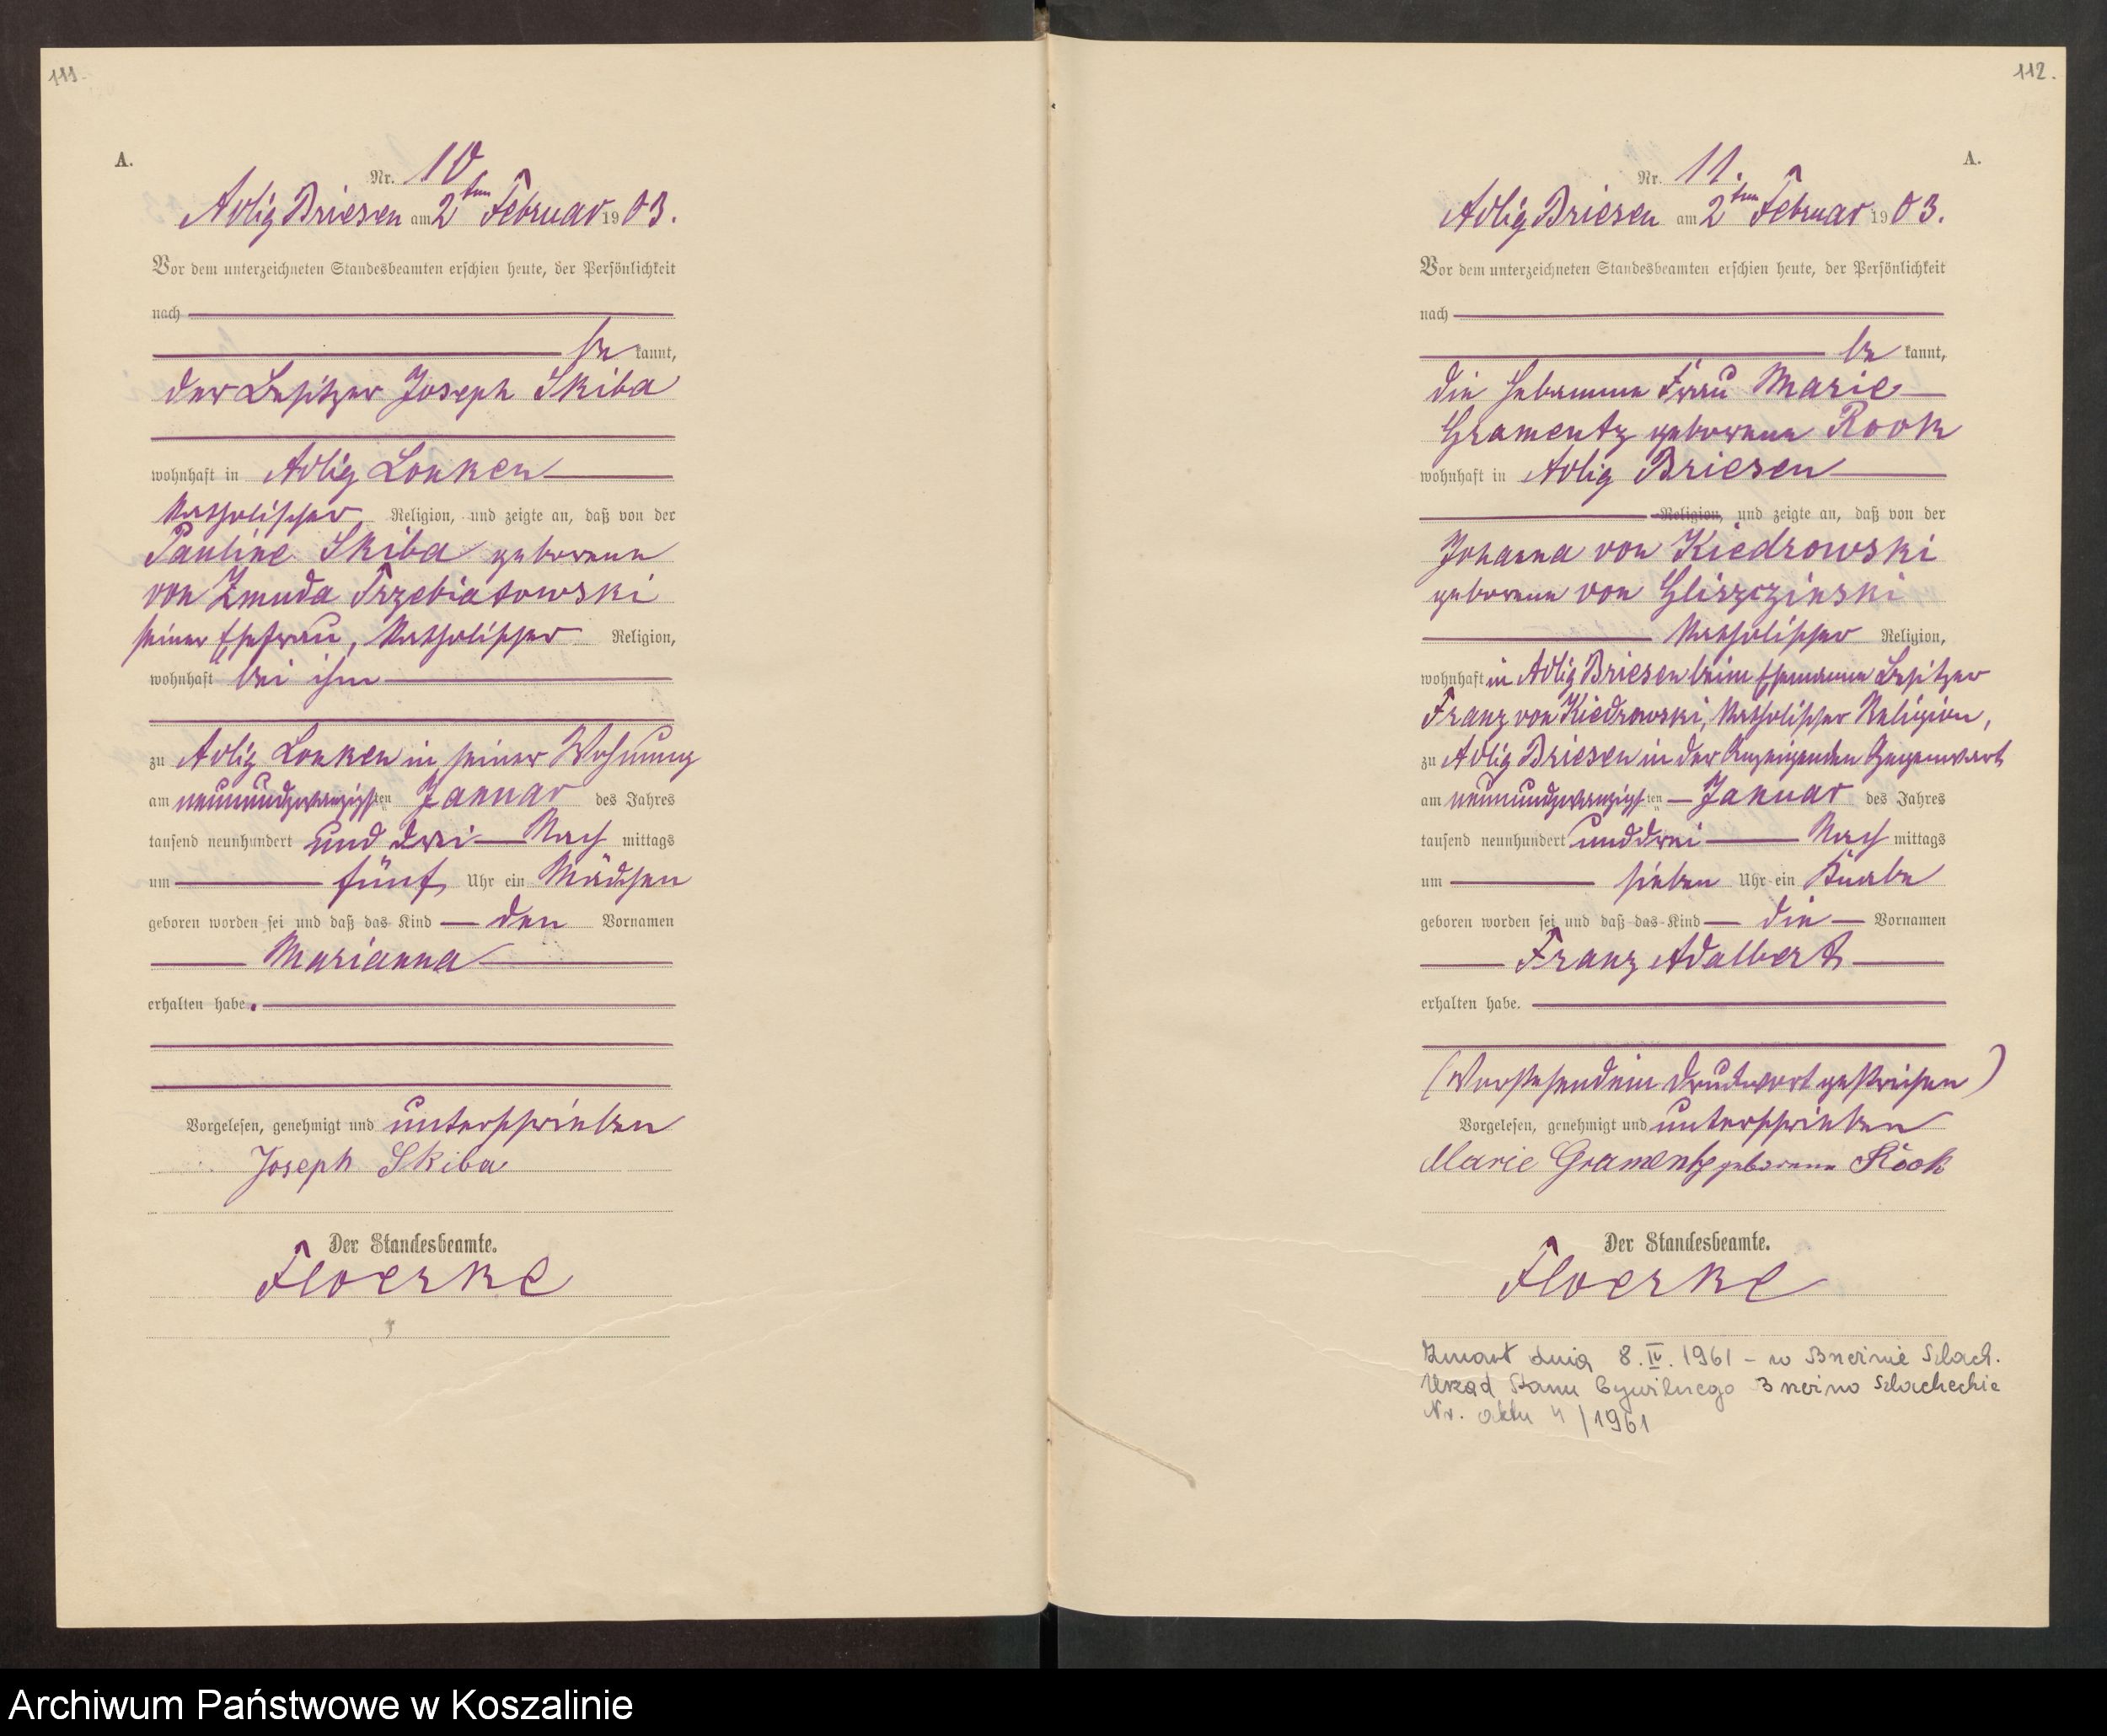 111.
A.
Nr. 10
Adlig Briesen am 2ten Februar 1903.
Vor dem unterzeichneten Standesbeamten erschien heute, der Persönlichkeit
nach
be kannt,
der Besitzer Joseph Skiba
wohnhaft in Adlig Lonken
katholischer Religion, und zeigte an, daß von der
Pauline Skiba geborene
von Zmuda Trzebiatowski
seiner Ehefrau, katholischer Religion,
wohnhaft bei ihm
zu Adlig Lonken in seiner Wohnung
am neunundzwanzigsten Januar des Jahres
tausend neunhundert und drei Nach mittags
um fünf Uhr ein Mädchen
geboren worden sei und daß das Kind den Vornamen
Marianna
erhalten habe.
Vorgelesen, genehmigt und unterschrieben
Joseph Skiba
Der Standesbeamte.
Floerke
112.
A.
Nr. 11.
Adlig Briesen am 2ten Februar 1903.
Vor dem unterzeichneten Standesbeamten erschien heute, der Persönlichkeit
nach
be kannt,
die Hebamme Frau Marie
Gramentz geborene Rook
wohnhaft in Adlig Briesen
Religion, und zeigte an, daß von der
Johanna von Kiedrowski
geborene von Gliszczinski
katholischer Religion,
wohnhaft in Adlig Briesen beim Ehemanne Besitzer
Franz von Kiedrowski, katholischer Religion,
zu Adlig Briesen in der Anzeigenden Gegenwart
am neunundzwanzigsten Januar des Jahres
tausend neunhundert und drei Nach mittags
um sieben Uhr ein Knabe
geboren worden sei und daß das Kind die Vornamen
Franz Adalbert
erhalten habe.
(Vorstehend ein Druckwort gestrichen)
Vorgelesen, genehmigt und unterschrieben
Marie Gramentz geborene Rook
Der Standesbeamte.
Floerke
Zmarł dnia 8.IV.1961 - w Brzeźnie Szlach.
Urząd Stanu Cywilnego Brzeźno Szlacheckie
Nr. aktu 4/1961
Archiwum Państwowe w Koszalinie